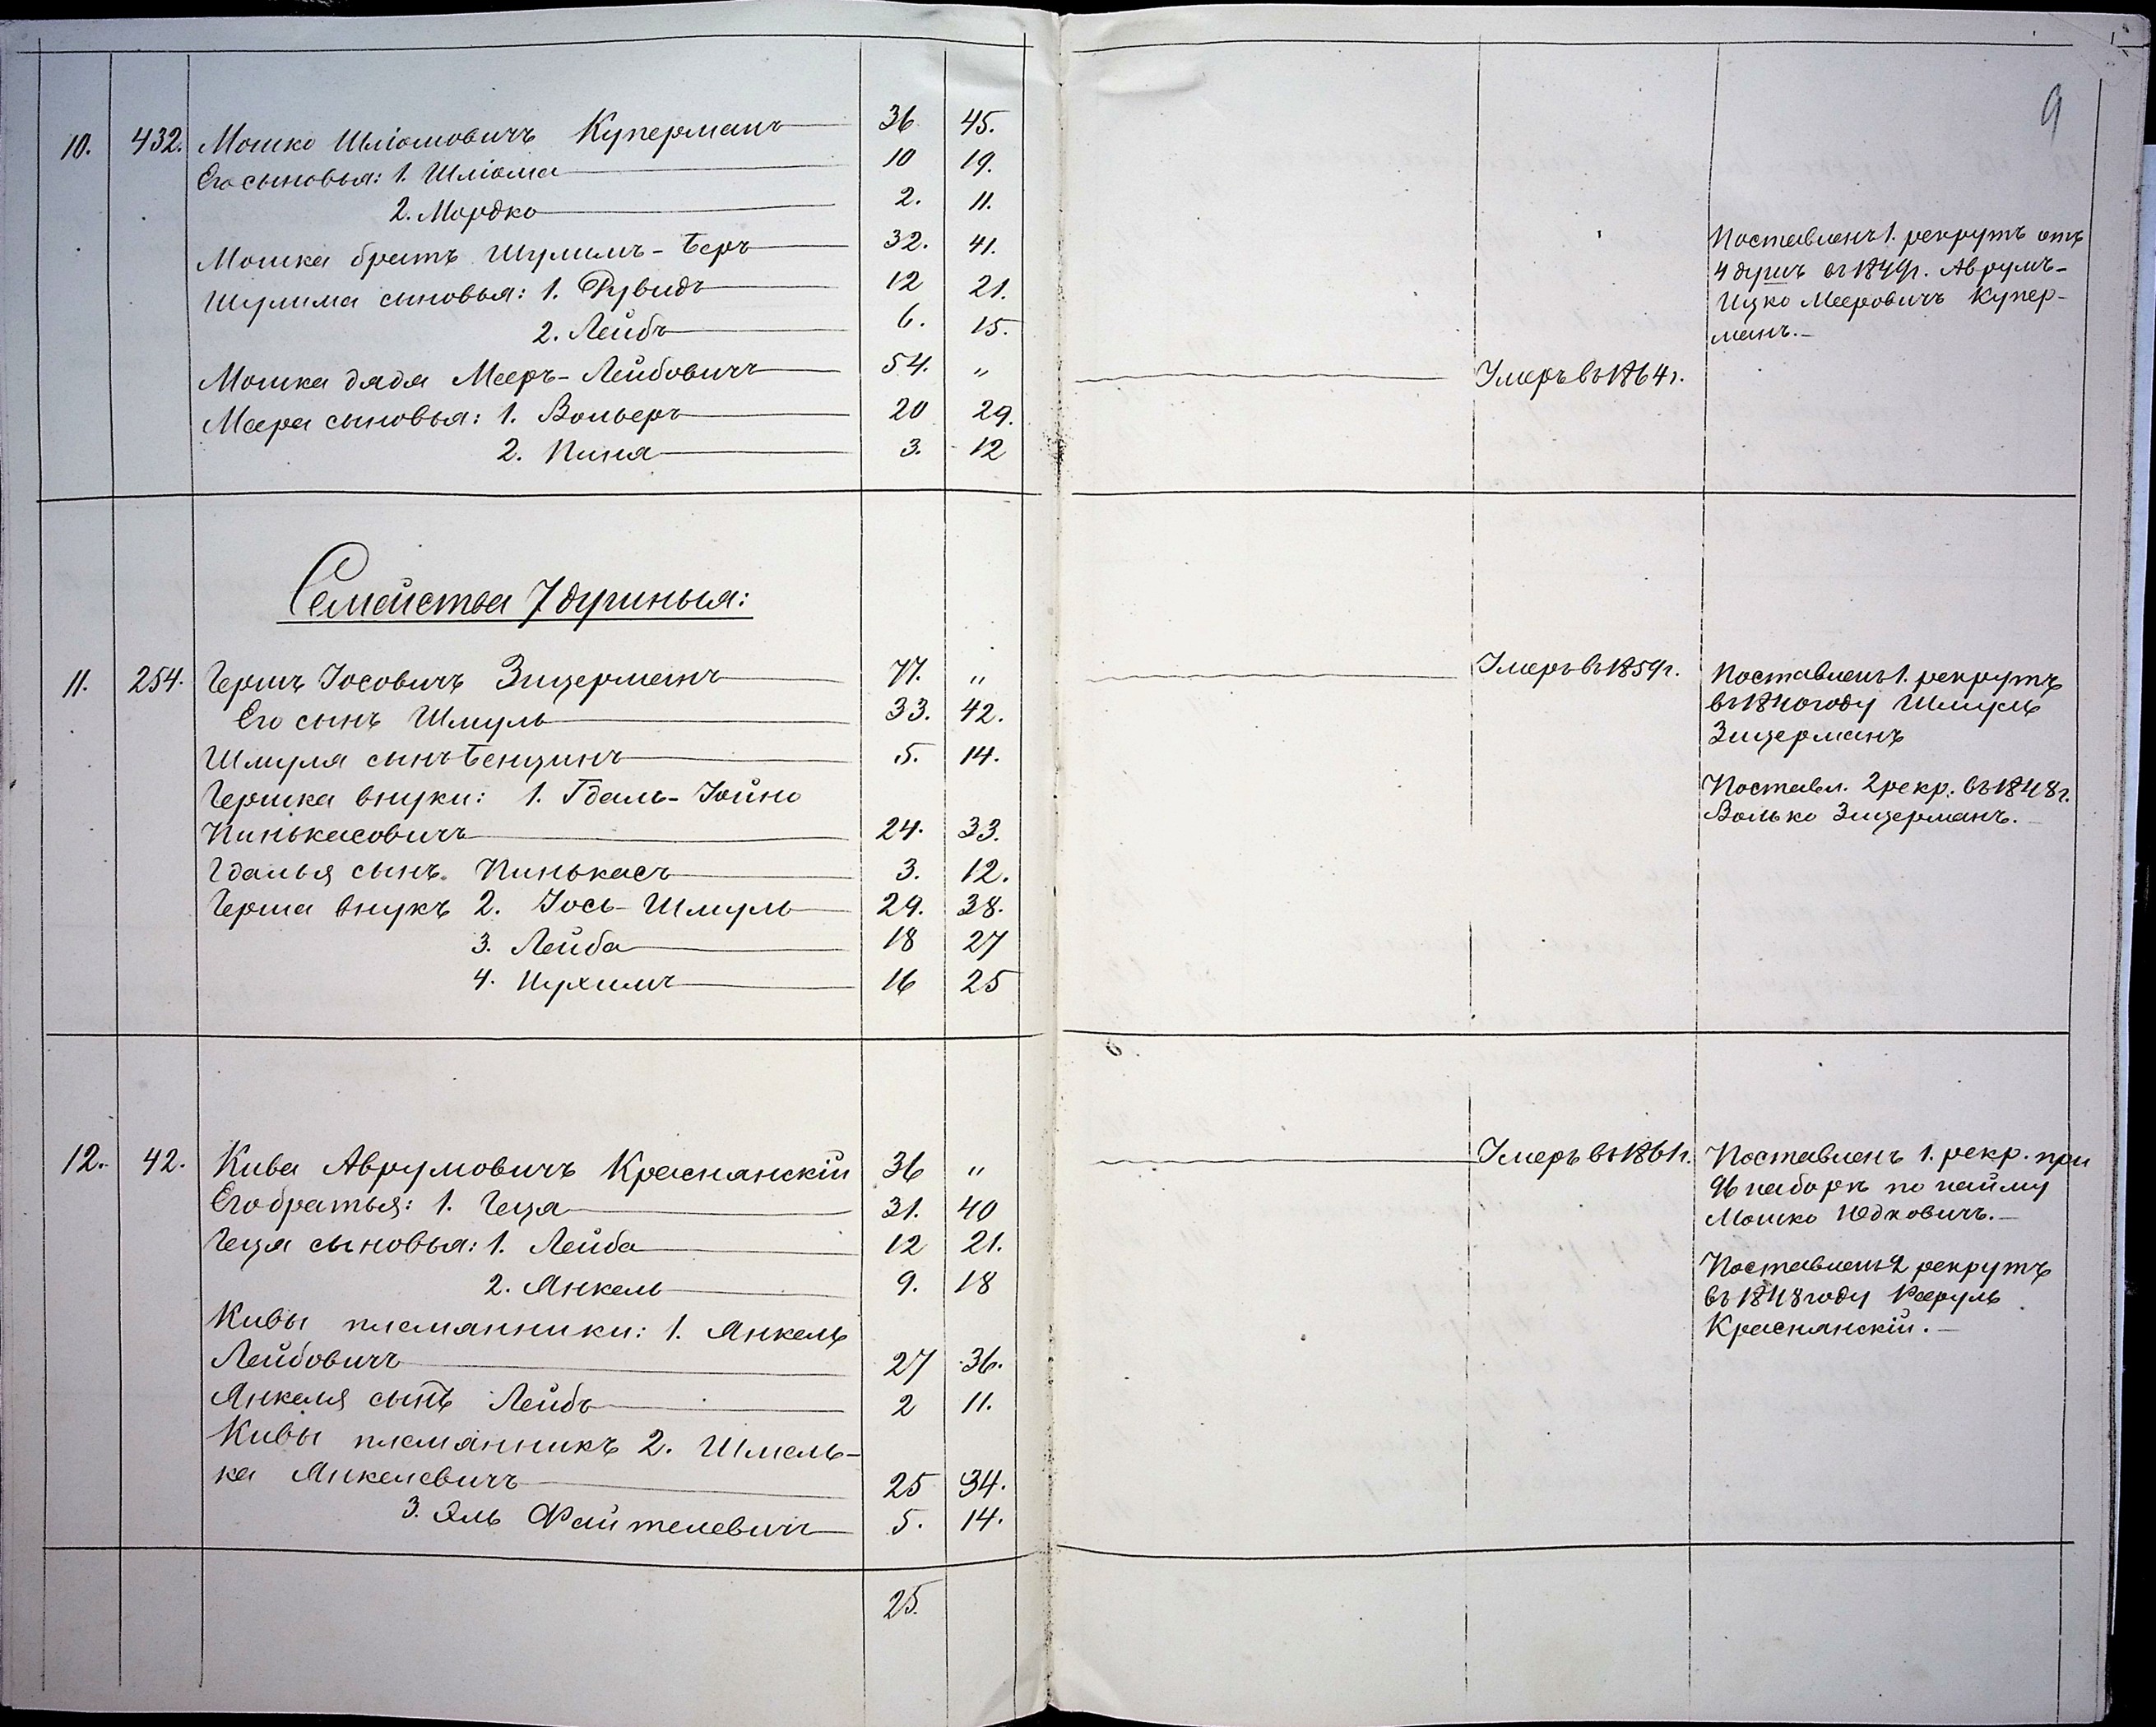 9
10. 432. Мошко Шліомовичъ Куперманъ 36 45.
Его сыновья: 1. Шліома 10 19.
2. Мордко 2. 11.
Мошка братъ Шулимъ-Беръ 32. 41.
Шулима сыновья: 1. Дувидъ 12 21.
2. Лейбъ 6. 15.
Мошка дядя Мееръ-Лейбовичъ 54. „ Умеръ въ 1864 г.
Меера сыновья: 1. Вольеръ 20 29.
2. Пиня 3. 12
Поставленъ 1. рекрутъ отъ
4 душъ въ 1849г. Аврумъ-
Ицко Мееровичъ Купер-
манъ.-
Семейства 7 душныя:
11. 254. Гершъ Іосовичъ Зицерманъ 77. „ Умеръ въ 1859г.
Его сынъ Шмуль 33. 42.
Шмуля сынъ Бенцинъ 5. 14.
Гершка внуки: 1. Гдаль-Іойно
Пинькасовичъ 24. 33.
Гдалья сынъ Пинькасъ 3. 12.
Герша внукъ 2. Іось-Шмуль 29. 38.
3. Лейба 18 27
4. Нухимъ 16 25
Поставленъ 1. рекрутъ
въ 1840 году Шмуль
Зицерманъ
Поставл. 2 рекр. въ 1848 г.
Волько Зицерманъ.-
12. 42. Кива Аврумовичъ Краснянскій 36 „ Умеръ въ 1861г.
Его братья: 1. Геця 31. 40
Геця сыновья: 1. Лейба 12 21.
2. Янкель 9. 18
Кивы племянники: 1. Янкель
Лейбовичъ 27 36.
Янкеля сынъ Лейбъ 2 11.
Кивы племянникъ 2. Шмель-
ка Янкелевичъ 25 34.
3. Эль Файтелевичъ 5. 14.
Поставленъ 1. рекр. при
96 наборѣ по найму
Мошко Юдковичъ.-
Поставленъ 2 рекрутъ
въ 1848 году
Краснянскій.-
25.